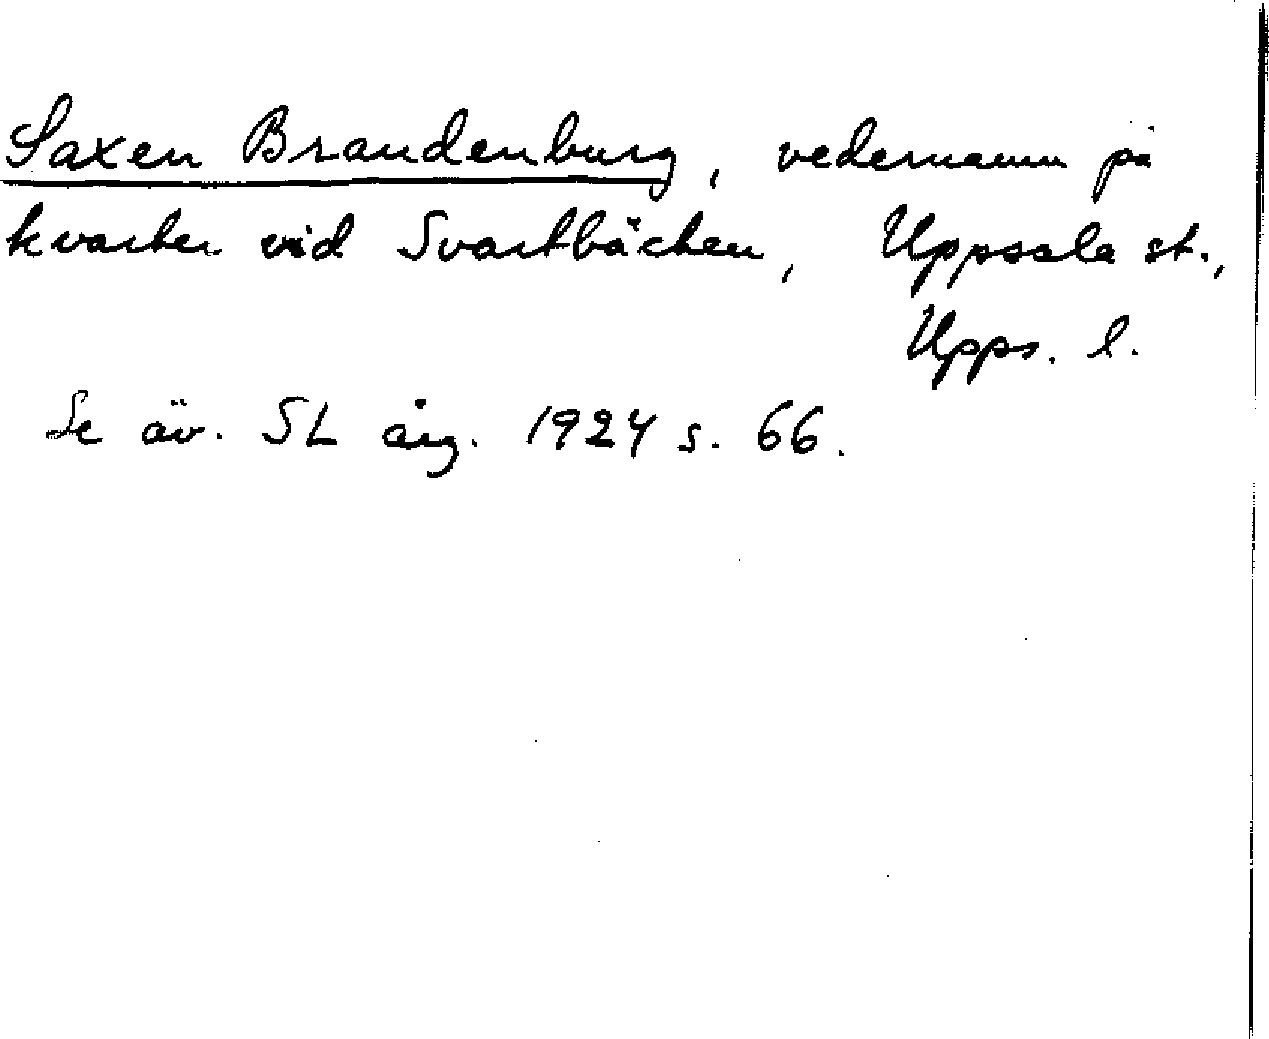 Saxen Brandenburg, vedernamn på
kvarter vid Svartbäcken, Uppsala st.,
Upps. l.
Se äv. SL årg. 1924 s. 66.